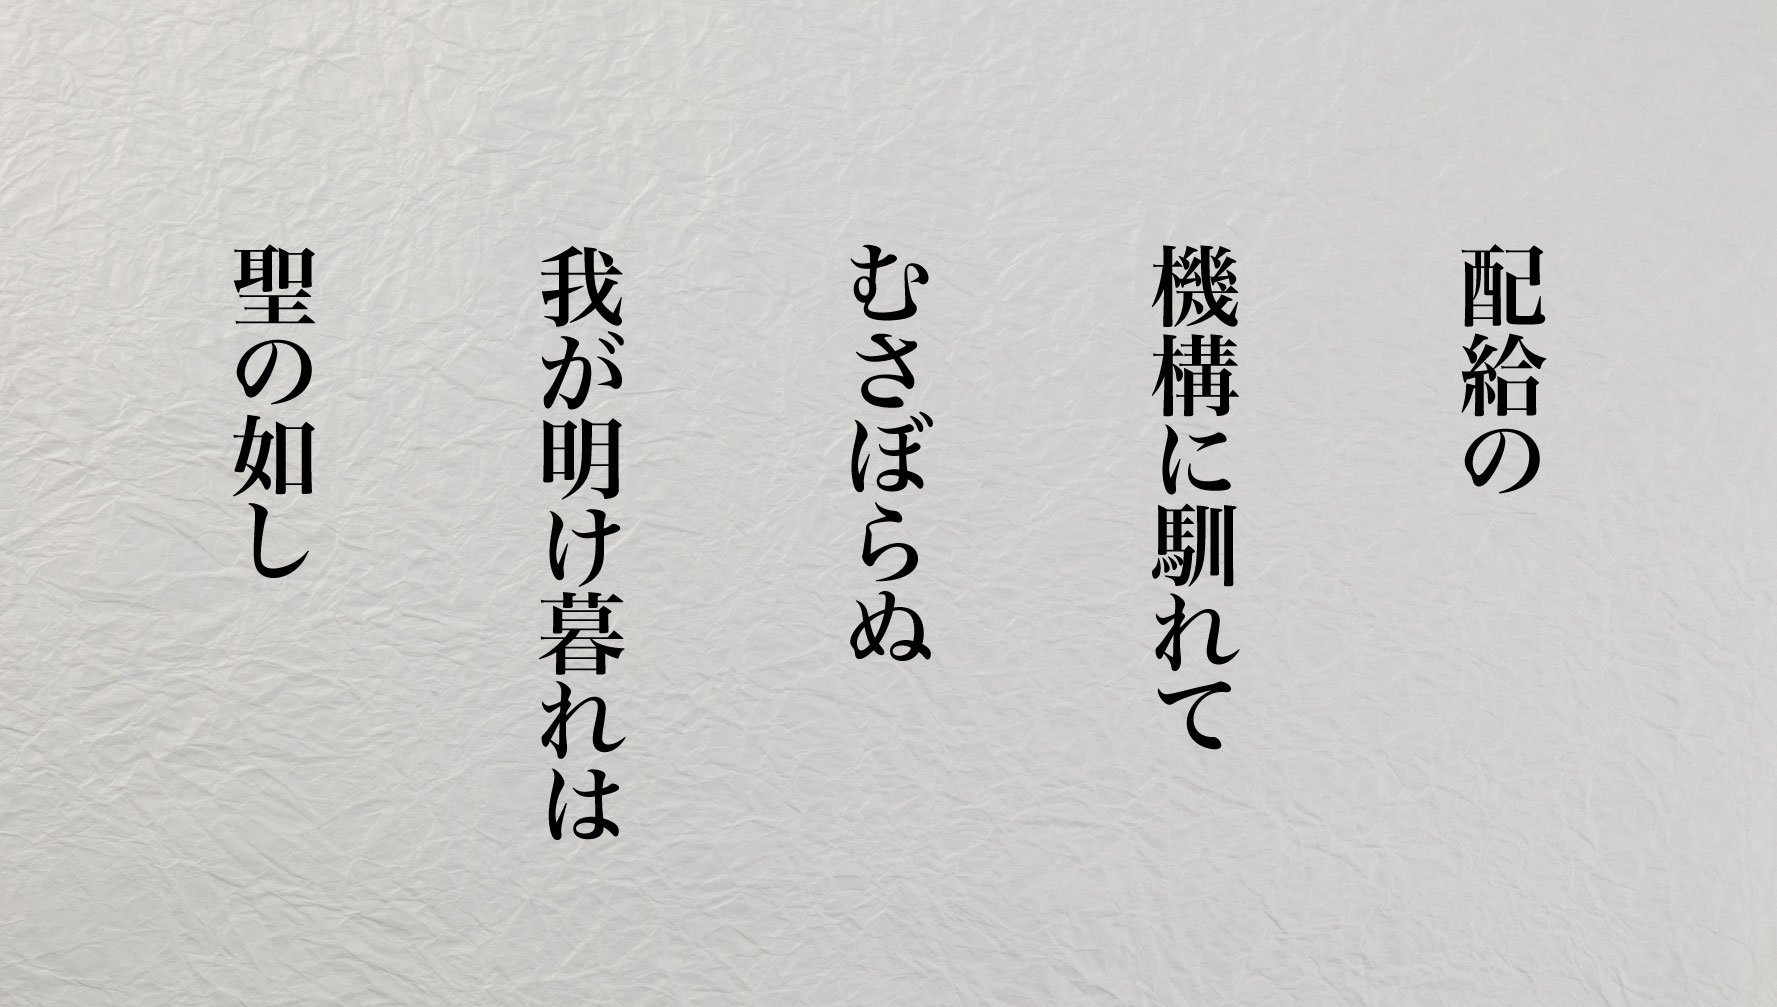 配給の
機構に馴れて
むさぼらぬ
我が明け暮れは
聖の如し